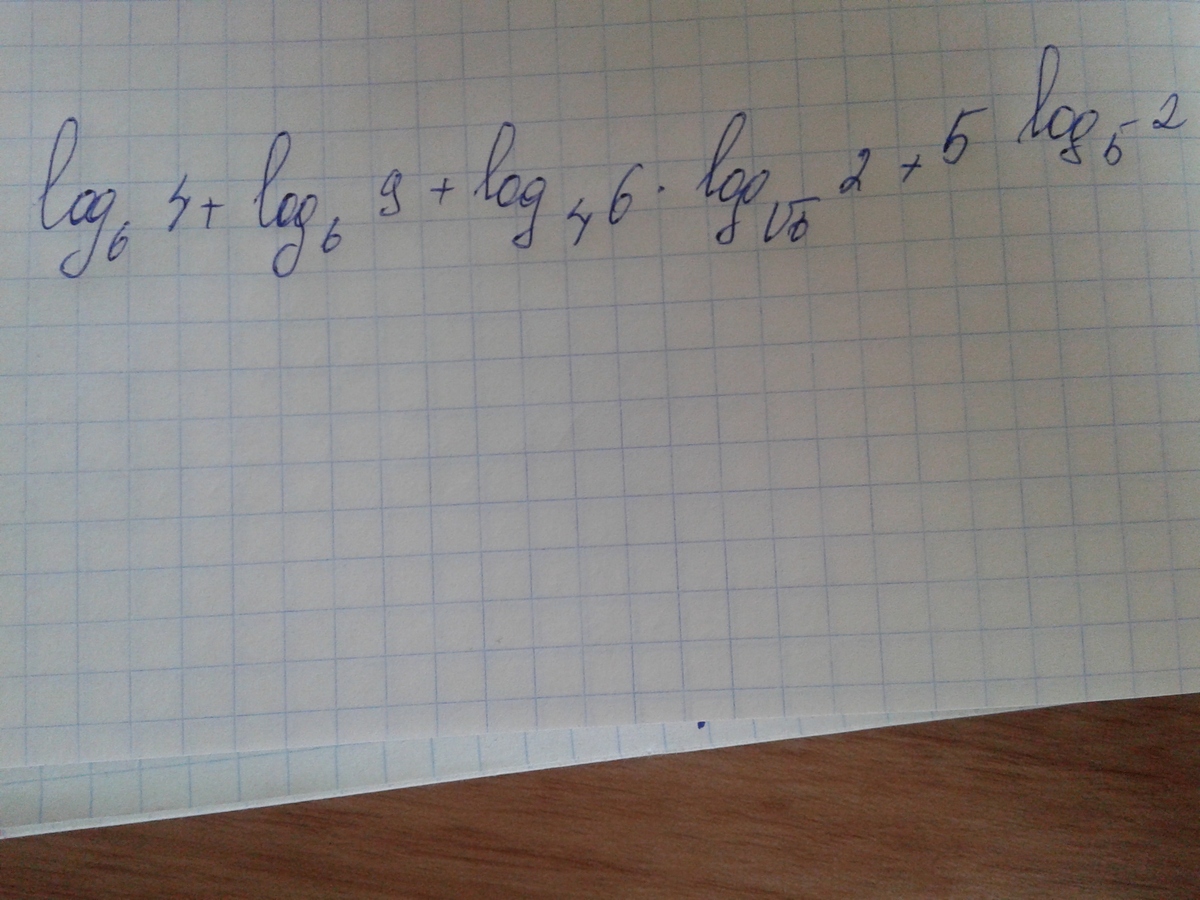 log₆ 4 + log₆ 9 + log₄ 6 · log_√6 2 + 5^(log₅ 2)